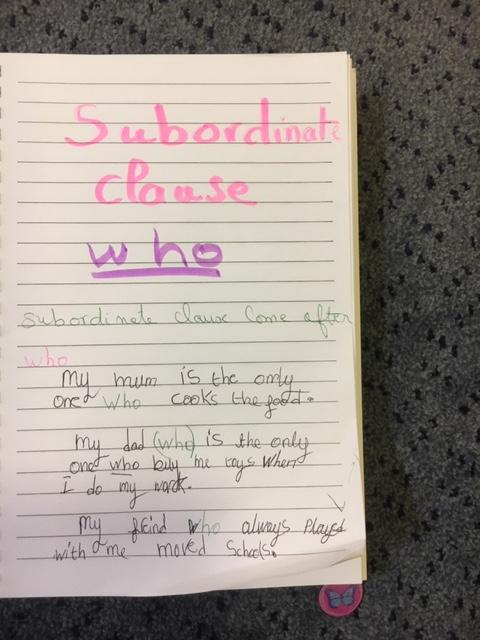 Subordinate
clause
who
subordinate clause come after
who
my mum is the only
one who cooks the food.
my dad (who) is the only
one who buy me toys when
I do my work.
My freind who always played
with me moved schools.